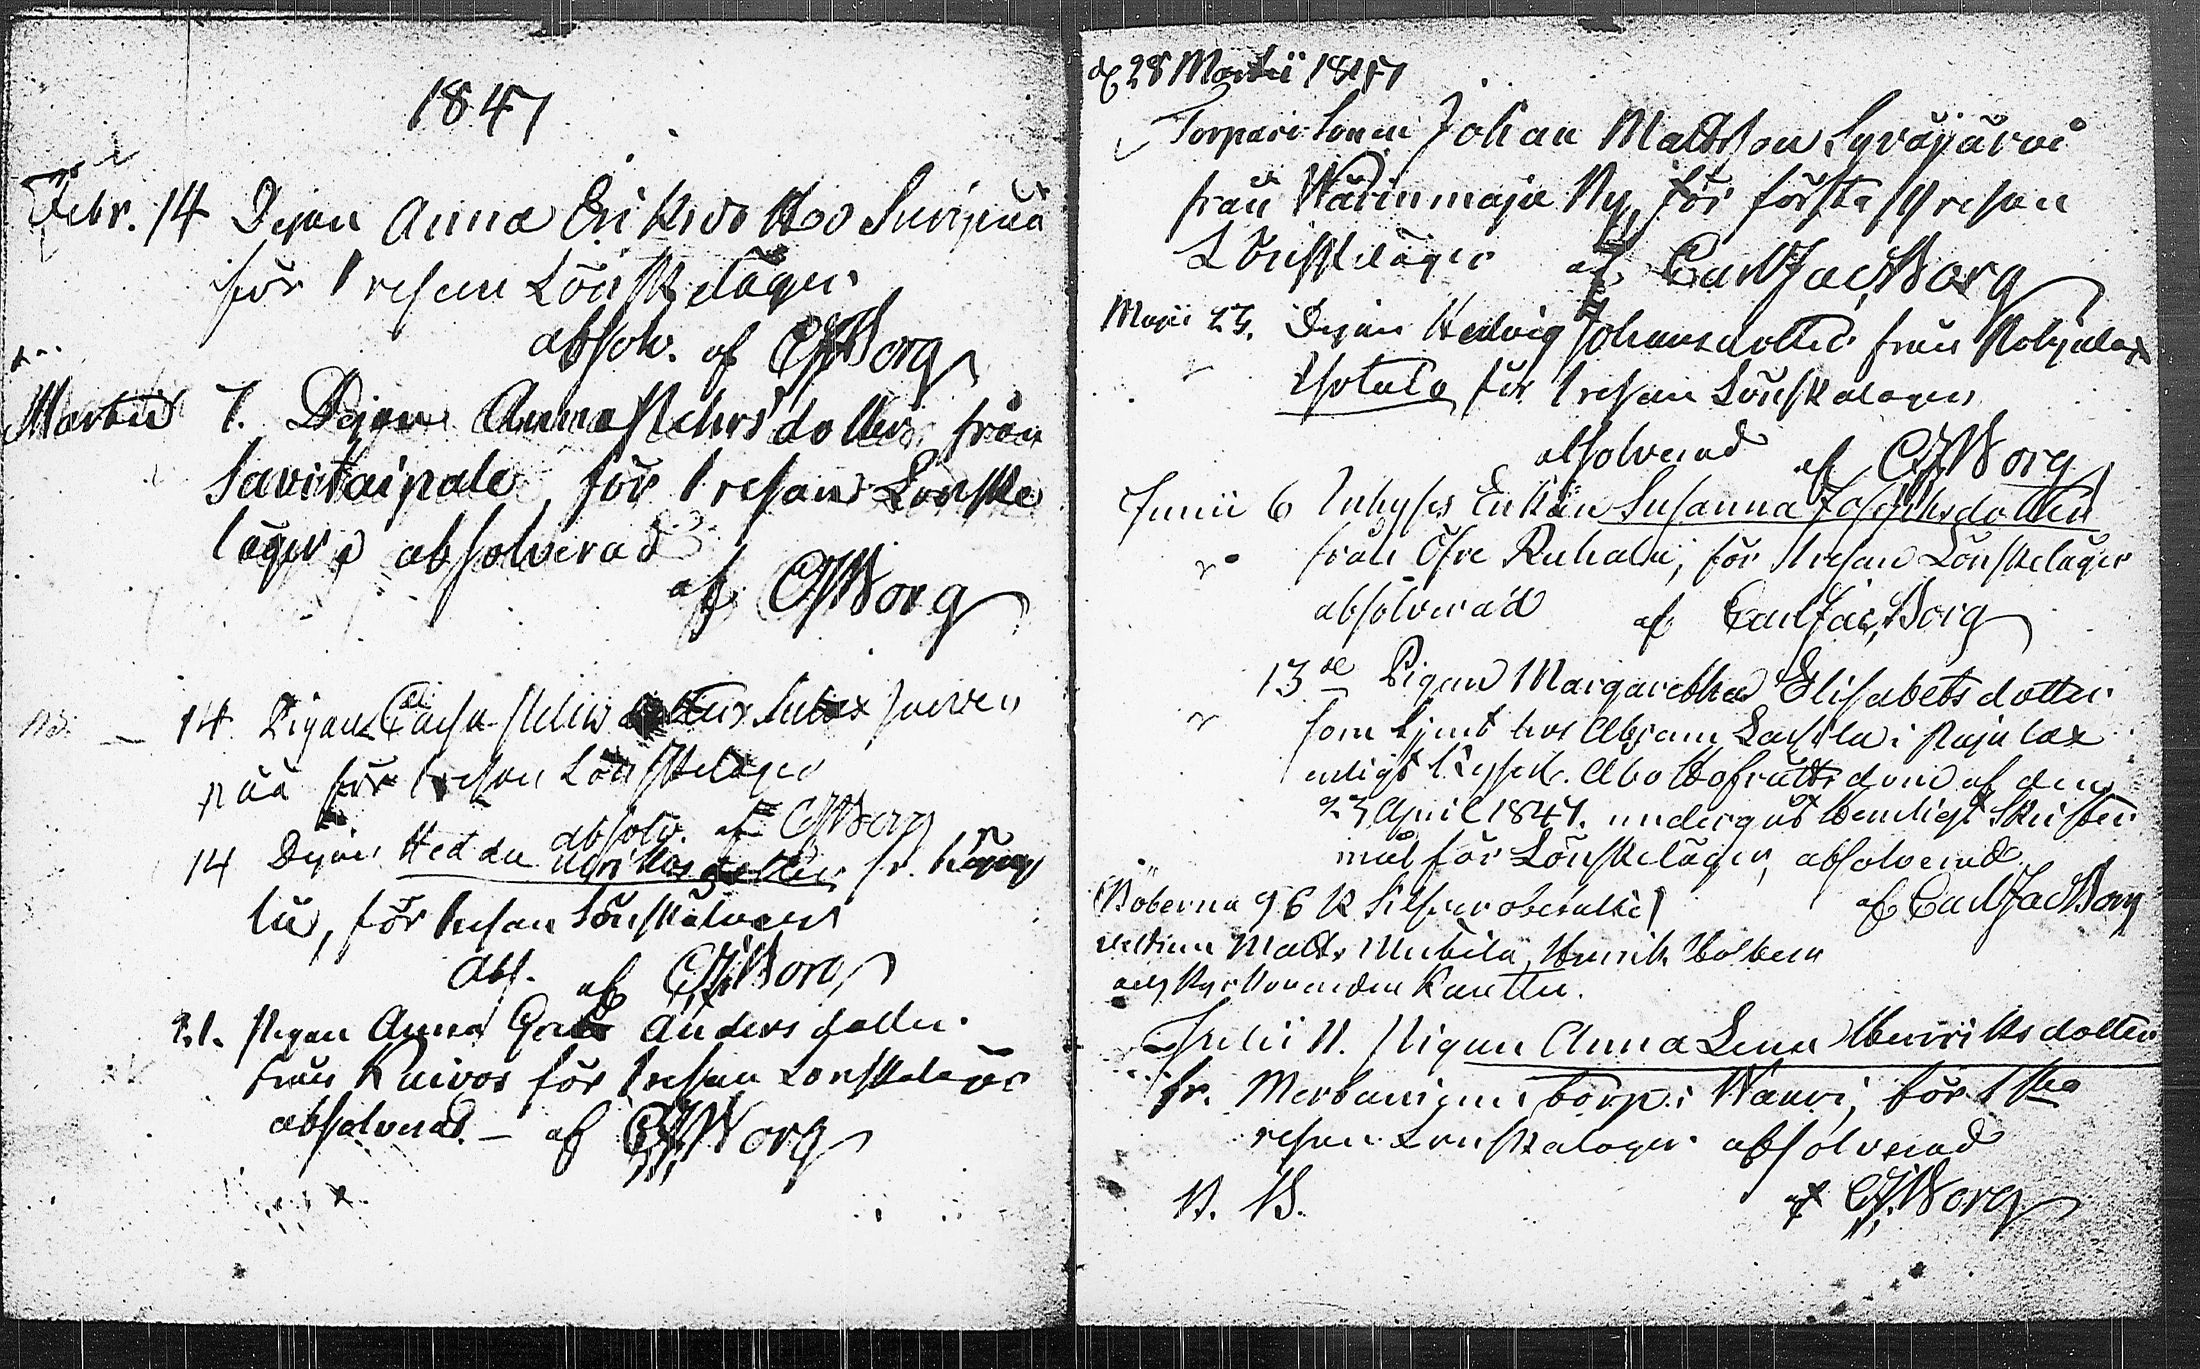 1847
Febr. 14 Pigan Anna Eriksdotter Suripää
för 1 resan Lönskeläger
absolv. af CJBorg
Martii 7. Pigan Anna Pehrsdotter från
Savitaipale, för 1 resan Lönske
läger, absolverad
af CJBorg
14 Pigan Caisa
pää för 1 resan Lönskeläger
absolv. af CJBorg
14 Pigan Hedda fr.
för 1 resan Lönskaläger
Abs. af CJBorg
21. Pigan Anna Greta Andersdotter
från Kuivos för 1 resan Lönskaläger
absolverad. – af CJBorg
d 28 Martii 1847
Torpare Sonen Johan Mattsson Syväjärvi
från Wärinmaja By, för första resan
Lönskeläger af Carl Jac. Borg
Maji 23. Pigan Hedvig Johansdotter från Pohjalax
för 1 resan Lönskaläger
absolverad af CJBorg
Junii 6 Inhyses Enkan Susanna Josephsdotter
från Öfre, för 1 resan Lönskeläger
absolverad af Carl Jac. Borg
13de Pigan Margaretha Elisabetsdotter
som tjent hos Abram i Pajulax
enligt Kejserl. Åbo Hofrätts dom af den
23 April 1847. undergått hemligt Skrifter
mål för Lönskeläger, absolverad
Böterna 9 6 K Silfver obetalte af Carl Jac Borg
Matts, Henrik
och Kyrkovärden
Julii 11. Pigan Anna Lena Henriksdotter
fr. torp i, för 1sta
resan Lönskaläger absolverad
N. B. af CJBorg